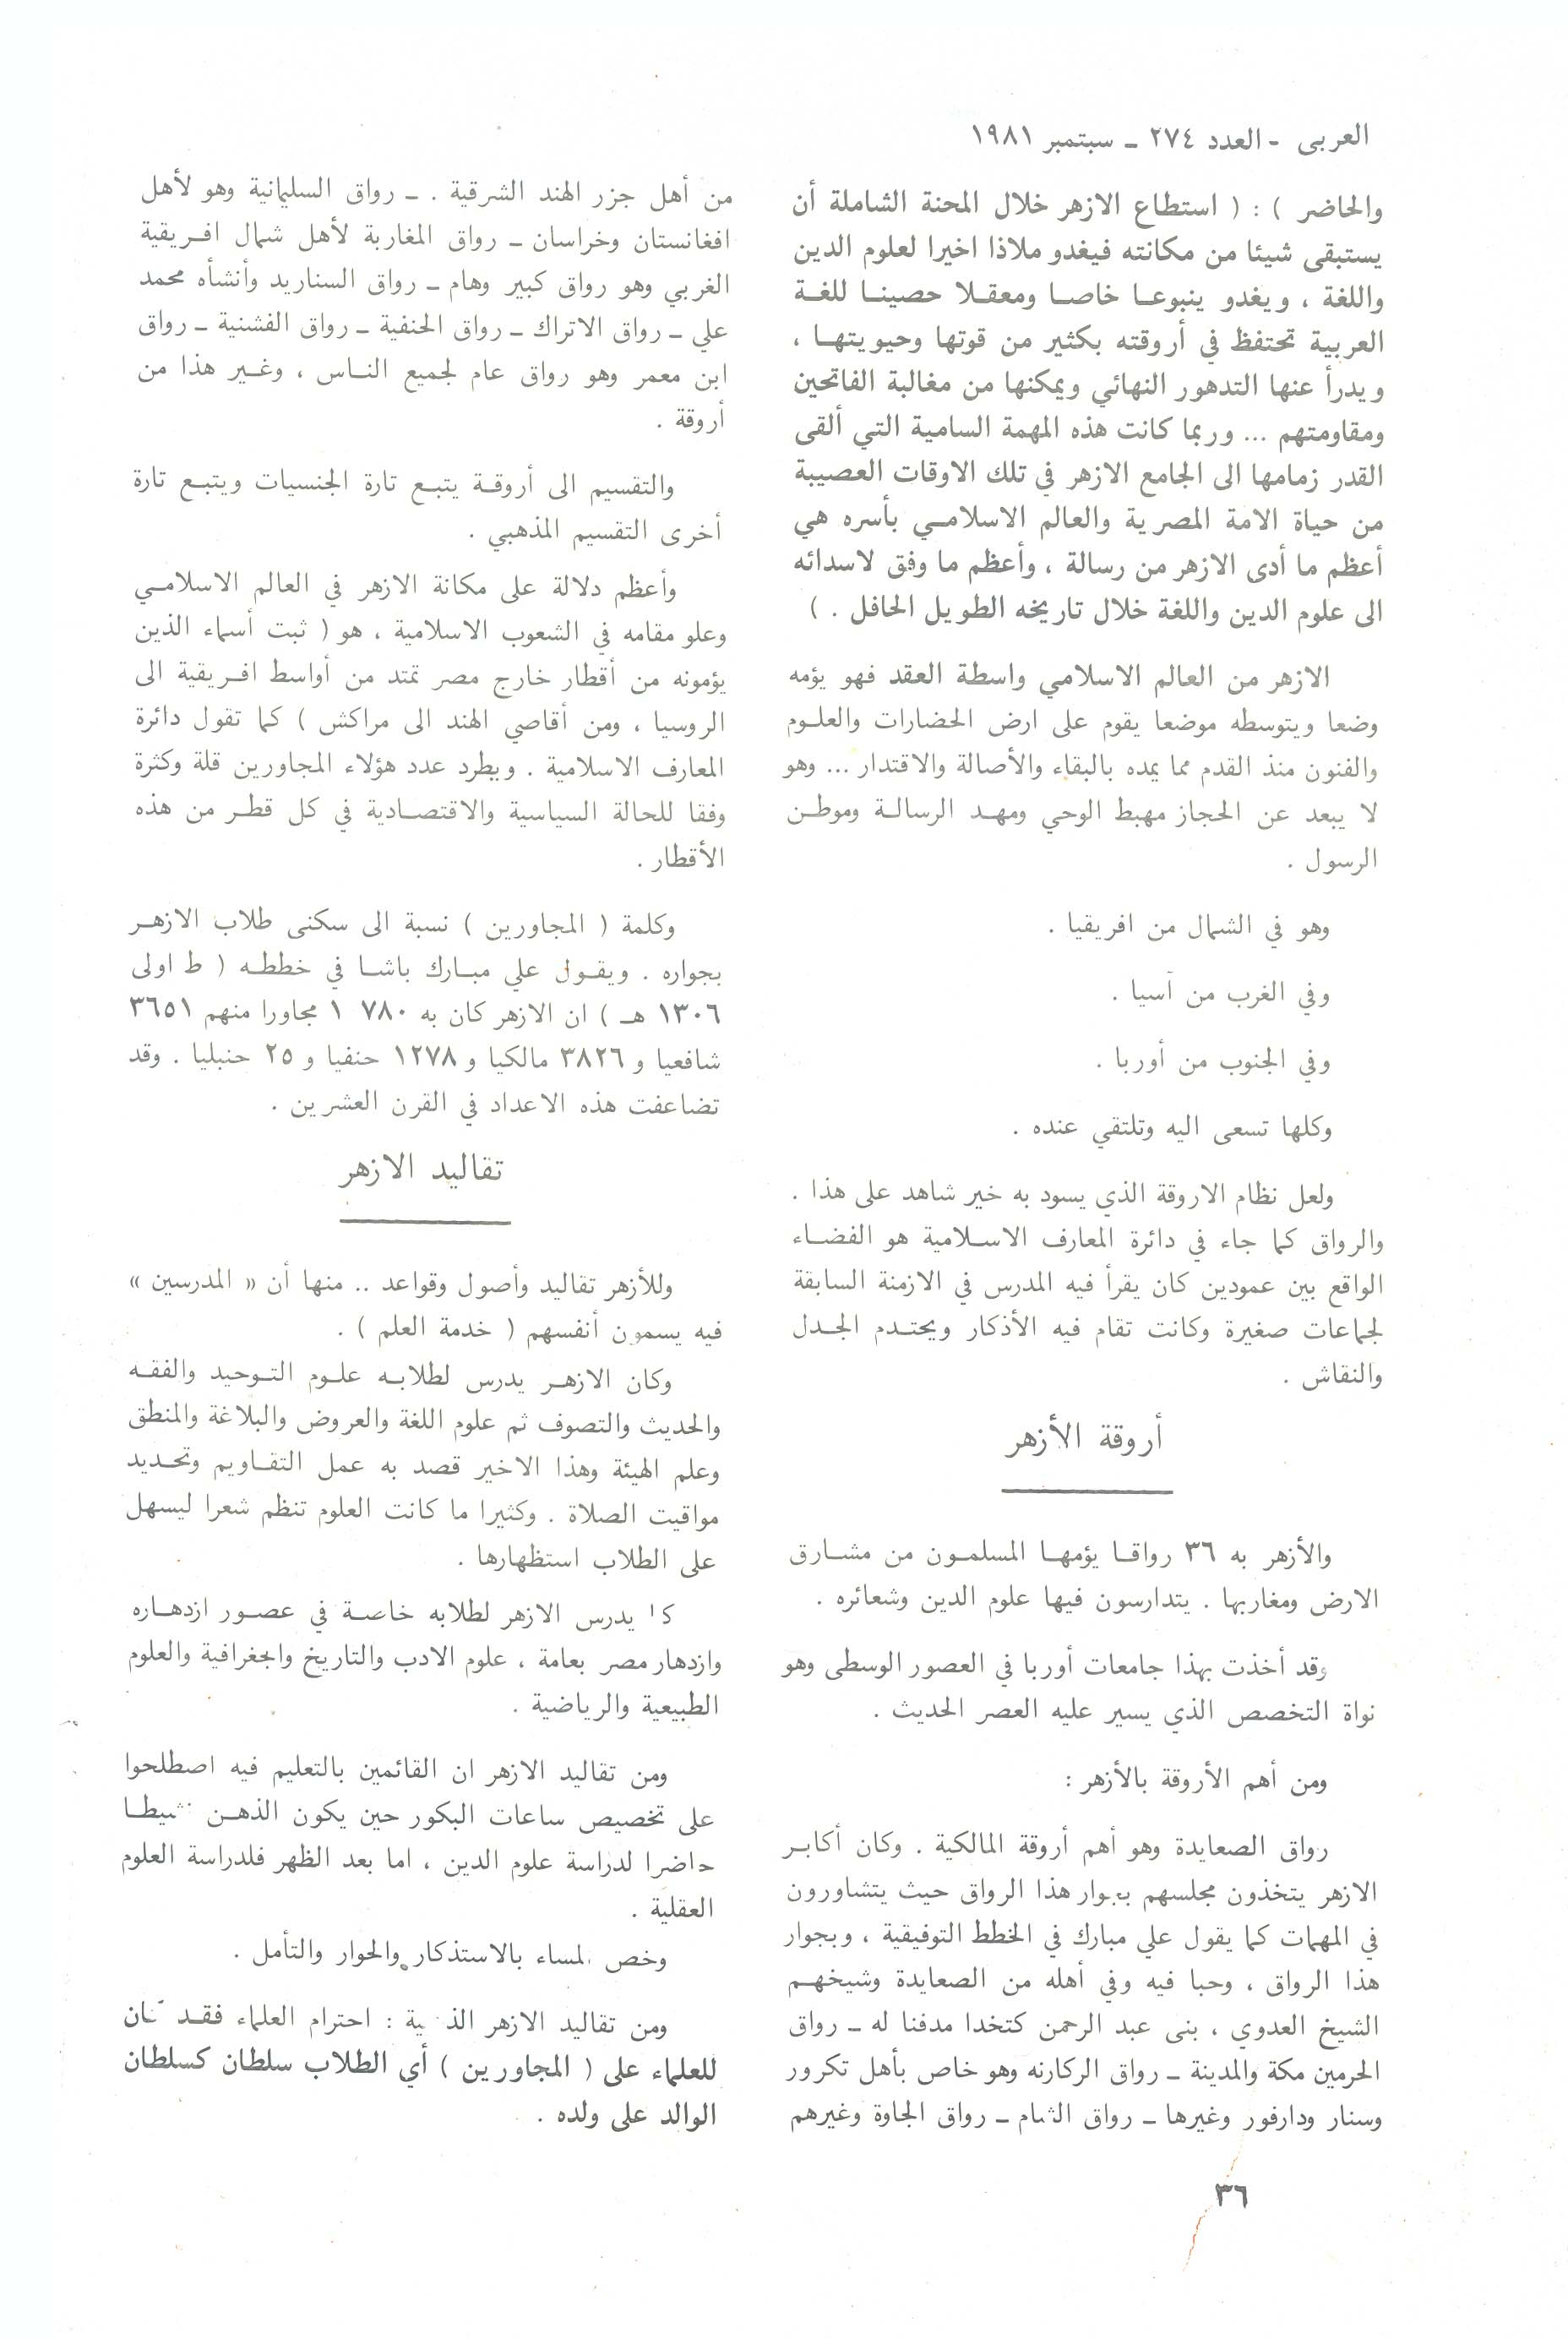 العربى - العدد ٢٧٤ ـ سبتمبر ١٩٨١
والحاضر ) : ( استطاع الازهر خلال المحنة الشاملة أن
يستبقى شيئا من مكانته فيغدو ملاذا اخيرا لعلوم الدين
واللغة ، ويغدو ينبوعا خاصا ومعقلا حصينا للغة
العربية تحتفظ في أروقته بكثير من قوتها وحيويتها ،
ويدرأ عنها التدهور النهائي ويمكنها من مغالبة الفاتحين
ومقاومتهم ... وربما كانت هذه المهمة السامية التي ألقى
القدر زمامها الى الجامع الازهر في تلك الاوقات العصيبة
من حياة الامة المصرية والعالم الاسلامي بأسره هي
أعظم ما أدى الازهر من رسالة ، وأعظم ما وفق لاسدائه
الى علوم الدين واللغة خلال تاريخه الطويل الحافل . )
الازهر من العالم الاسلامي واسطة العقد فهو يؤمه
وضعا ويتوسطه موضعا يقوم على ارض الحضارات والعلوم
والفنون منذ القدم مما يمده بالبقاء والأصالة والاقتدار ... وهو
لا يبعد عن الحجاز مهبط الوحي ومهد الرسالة وموطن
الرسول .
وهو في الشمال من افريقيا .
وفي الغرب من آسيا .
وفي الجنوب من أوربا .
وكلها تسعى اليه وتلتقي عنده .
ولعل نظام الاروقة الذي يسود به خير شاهد على هذا .
والرواق كما جاء في دائرة المعارف الاسلامية هو الفضاء
الواقع بين عمودين كان يقرأ فيه المدرس في الازمنة السابقة
لجماعات صغيرة وكانت تقام فيه الأذكار ويحتدم الجدل
والنقاش .
أروقة الأزهر
والأزهر به ٣٦ رواقا يؤمها المسلمون من مشارق
الارض ومغاربها . يتدارسون فيها علوم الدين وشعائره .
وقد أخذت بهذا جامعات أوربا في العصور الوسطى وهو
نواة التخصص الذي يسير عليه العصر الحديث .
ومن أهم الأروقة بالأزهر :
رواق الصعايدة وهو أهم أروقة المالكية . وكان أكابر
الازهر يتخذون مجلسهم بجوار هذا الرواق حيث يتشاورون
في المهمات كما يقول علي مبارك في الخطط التوفيقية ، وبجوار
هذا الرواق ، وحبا فيه وفي أهله من الصعايدة وشيخهم
الشيخ العدوي ، بنى عبد الرحمن كتخدا مدفنا له ـ رواق
الحرمين مكة والمدينة ـ رواق الركارنه وهو خاص بأهل تكرور
وسنار ودارفور وغيرها ـ رواق الشام ـ رواق الجاوة وغيرهم
من أهل جزر الهند الشرقية . ـ رواق السليمانية وهو لأهل
افغانستان وخراسان ـ رواق المغاربة لأهل شمال افريقية
الغربي وهو رواق كبير وهام ـ رواق السناريد وأنشأه محمد
علي ـ رواق الاتراك ـ رواق الحنفية ـ رواق الفشنية ـ رواق
ابن معمر وهو رواق عام لجميع الناس ، وغير هذا من
أروقة .
والتقسيم الى أروقة يتبع تارة الجنسيات ويتبع تارة
أخرى التقسيم المذهبي .
وأعظم دلالة على مكانة الازهر في العالم الاسلامي
وعلو مقامه في الشعوب الاسلامية ، هو ( ثبت أسماء الذين
يؤمونه من أقطار خارج مصر تمتد من أواسط افريقية الى
الروسيا ، ومن أقاصي الهند الى مراكش ) كما تقول دائرة
المعارف الاسلامية . ويطرد عدد هؤلاء المجاورين قلة وكثرة
وفقا للحالة السياسية والاقتصادية في كل قطر من هذه
الأقطار .
وكلمة ( المجاورين ) نسبة الى سكنى طلاب الازهر
بجواره . ويقول علي مبارك باشا في خططه ( ط اولى
١٣٠٦ هـ ) ان الازهر كان به ٧٨٠ ١ مجاورا منهم ٣٦٥١
شافعيا و ٣٨٢٦ مالكيا و ١٢٧٨ حنفيا و ٢٥ حنبليا . وقد
تضاعفت هذه الاعداد في القرن العشرين .
تقاليد الازهر
وللأزهر تقاليد وأصول وقواعد .. منها أن « المدرسين »
فيه يسمون أنفسهم ( خدمة العلم ) .
وكان الازهر يدرس لطلابه علوم التوحيد والفقه
والحديث والتصوف ثم علوم اللغة والعروض والبلاغة والمنطق
وعلم الهيئة وهذا الاخير قصد به عمل التقاويم وتحديد
مواقيت الصلاة . وكثيرا ما كانت العلوم تنظم شعرا ليسهل
على الطلاب استظهارها .
يدرس الازهر لطلابه خاصة في عصور ازدهاره
وازدهار مصر بعامة ، علوم الادب والتاريخ والجغرافية والعلوم
الطبيعية والرياضية .
ومن تقاليد الازهر ان القائمين بالتعليم فيه اصطلحوا
على تخصيص ساعات البكور حين يكون الذهن نشيطا
حاضرا لدراسة علوم الدين ، اما بعد الظهر فلدراسة العلوم
العقلية .
وخص المساء بالاستذكار والحوار والتأمل .
ومن تقاليد الازهر : احترام العلماء فقد كان
للعلماء على ( المجاورين ) أي الطلاب سلطان كسلطان
الوالد على ولده .
٣٦